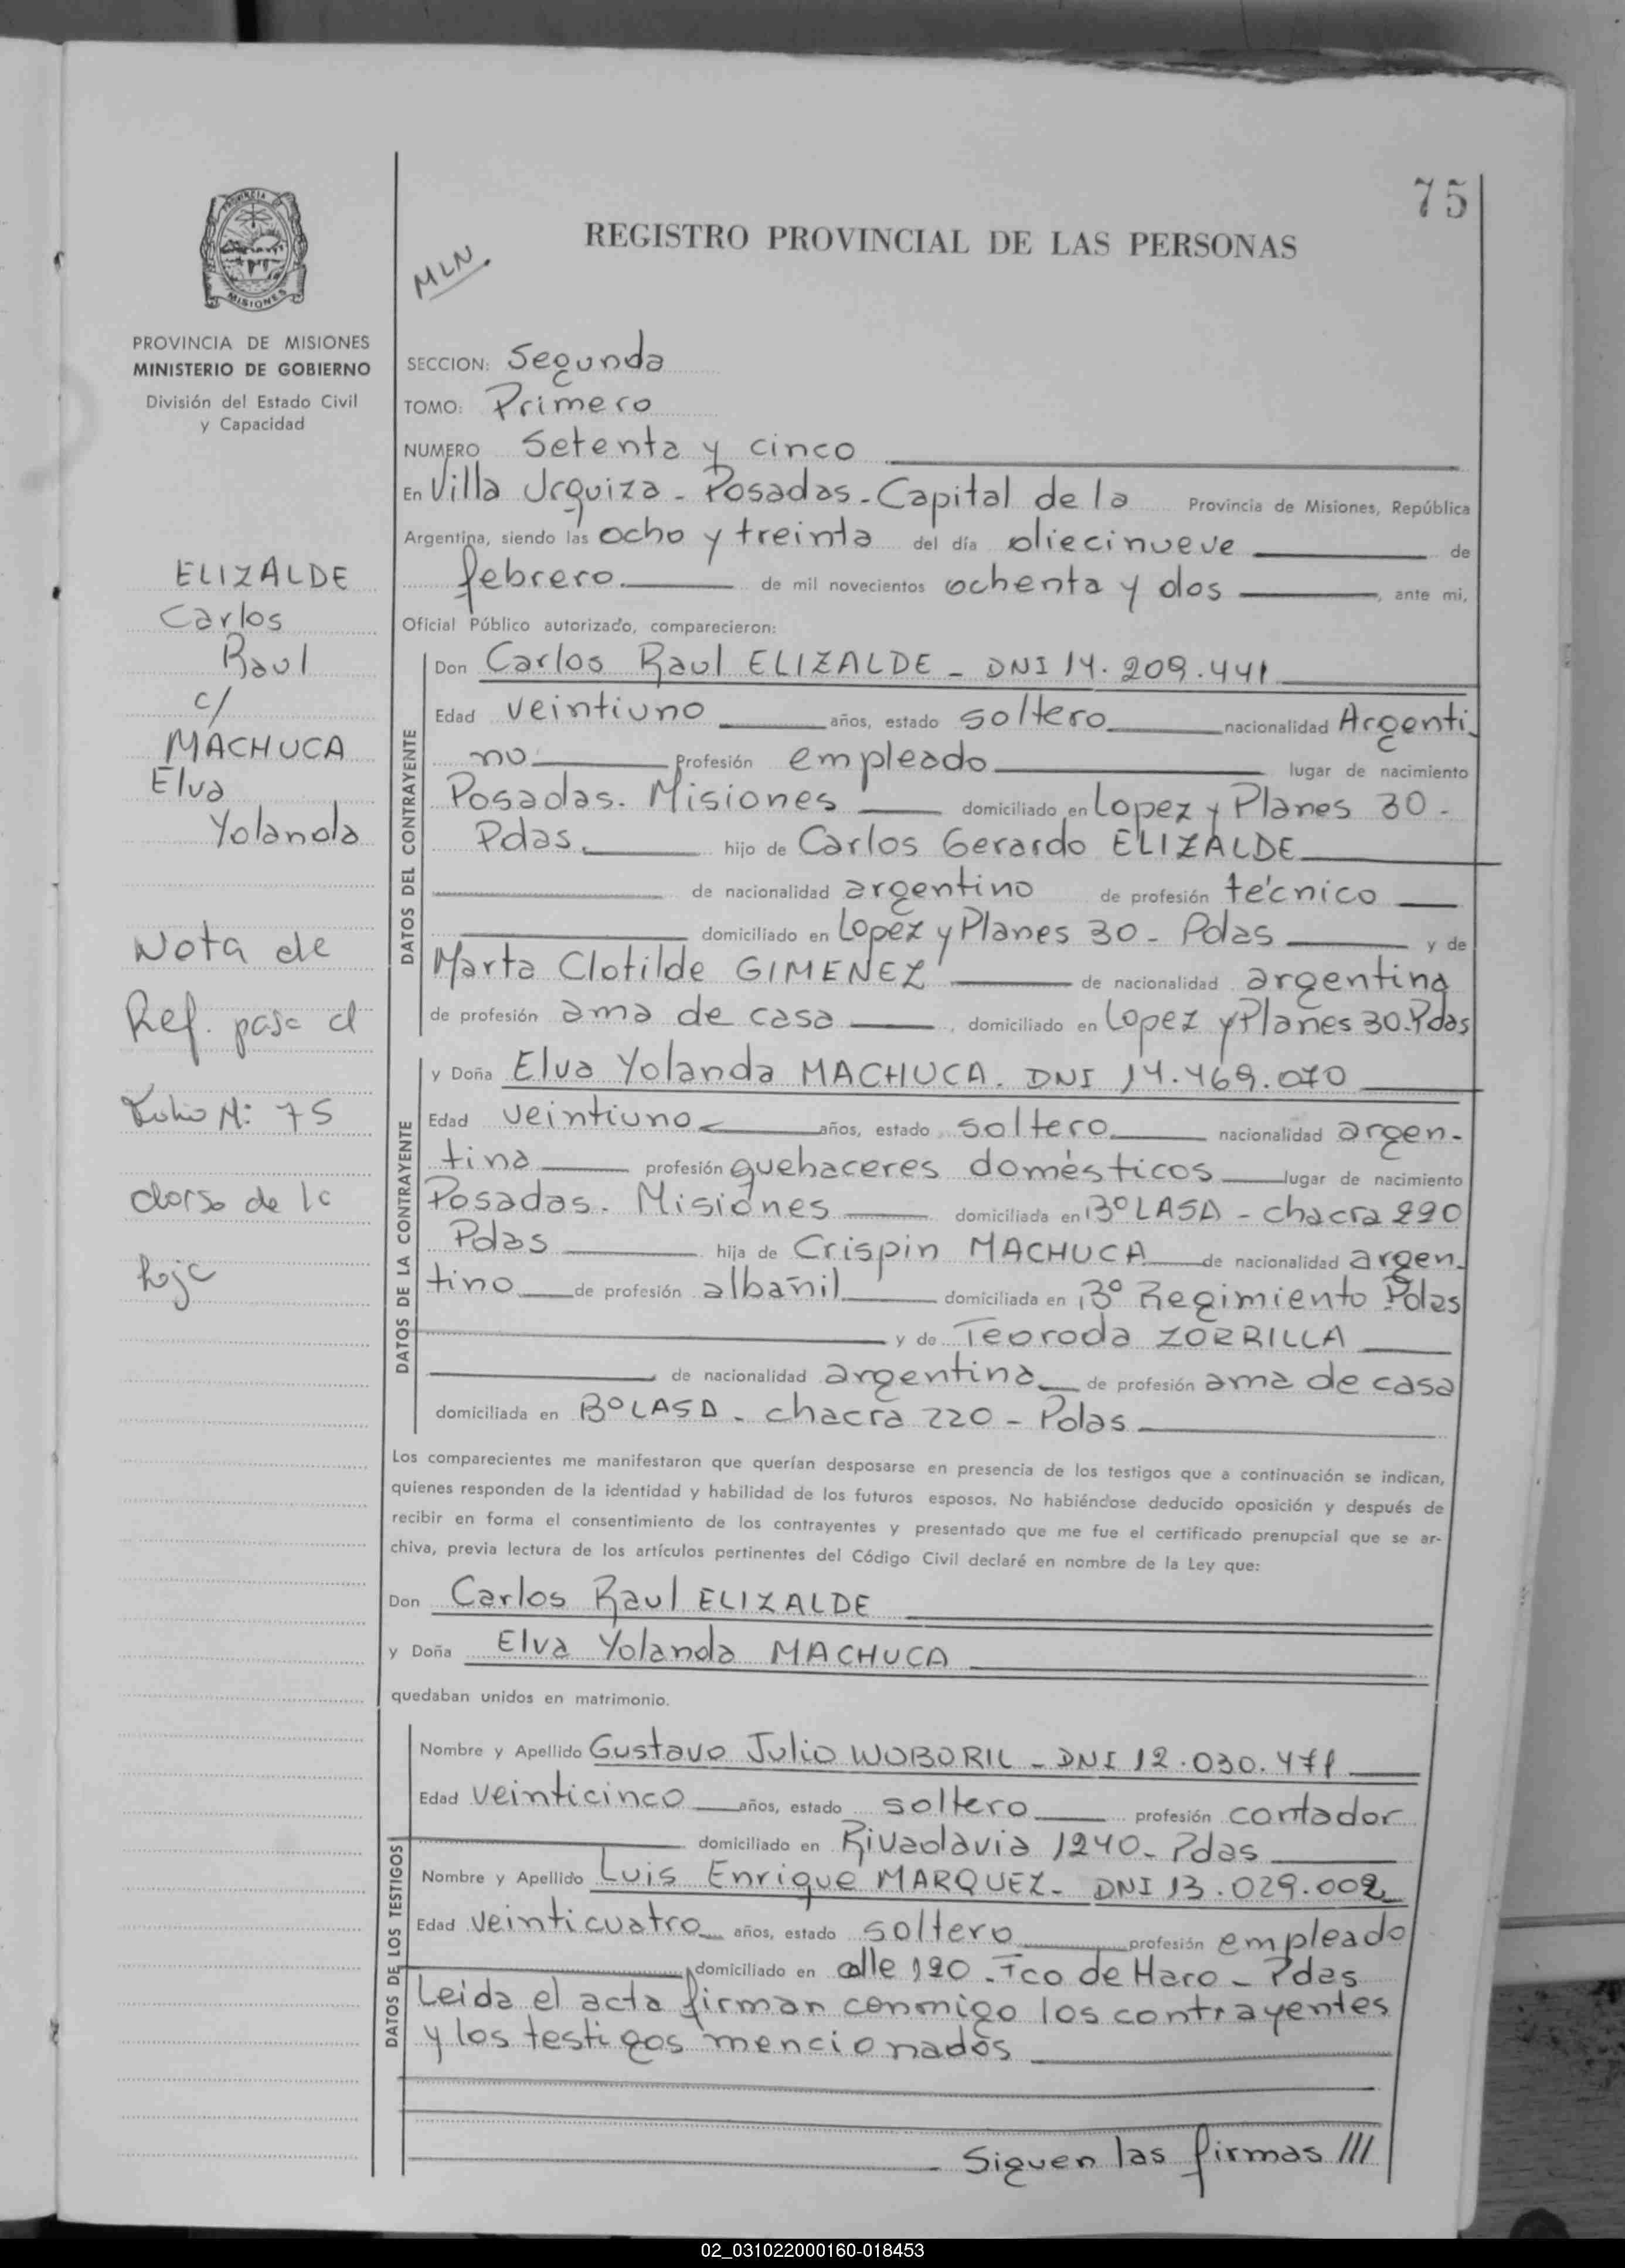 75
REGISTRO PROVINCIAL DE LAS PERSONAS
MLN.
PROVINCIA
MISIONES
PROVINCIA DE MISIONES
MINISTERIO DE GOBIERNO
División del Estado Civil
y Capacidad
ELIZALDE
Carlos
Raul
c/
MACHUCA
Elva
Yolanda
Nota de
Ref. pasa al
Folio N: 75
dorso de la
hoja
SECCION: Segunda
TOMO: Primero
NUMERO Setenta y cinco
En Villa Urquiza - Posadas - Capital de la Provincia de Misiones, República
Argentina, siendo las ocho y treinta del día diecinueve de
febrero. de mil novecientos ochenta y dos, ante mi,
Oficial Público autorizado, comparecieron:
DATOS DEL CONTRAYENTE
Don Carlos Raul ELIZALDE - DNI 14.209.441
Edad veintiuno años, estado soltero nacionalidad Argenti-
no Profesión empleado lugar de nacimiento
Posadas. Misiones domiciliado en Lopez y Planes 30 -
Pdas. hijo de Carlos Gerardo ELIZALDE
de nacionalidad argentino de profesión técnico
domiciliado en Lopez y Planes 30 - Pdas y de
Marta Clotilde GIMENEZ de nacionalidad argentina
de profesión ama de casa, domiciliado en Lopez y Planes 30. Pdas
DATOS DE LA CONTRAYENTE
y Doña Elva Yolanda MACHUCA. DNI 14.469.070
Edad veintiuno años, estado soltero nacionalidad argen-
tina profesión quehaceres domésticos lugar de nacimiento
Posadas. Misiones domiciliada en Bº LASA - chacra 220
Pdas hija de Crispin MACHUCA de nacionalidad argen-
tino de profesión albañil domiciliada en Bº Regimiento Pdas
y de Teoroda ZORRILLA
de nacionalidad argentina de profesión ama de casa
domiciliada en Bº LASA - chacra 220 - Pdas
Los comparecientes me manifestaron que querían desposarse en presencia de los testigos que a continuación se indican,
quienes responden de la identidad y habilidad de los futuros esposos. No habiéndose deducido oposición y después de
recibir en forma el consentimiento de los contrayentes y presentado que me fue el certificado prenupcial que se ar-
chiva, previa lectura de los artículos pertinentes del Código Civil declaré en nombre de la Ley que:
Don Carlos Raul ELIZALDE
y Doña Elva Yolanda MACHUCA
quedaban unidos en matrimonio.
DATOS DE LOS TESTIGOS
Nombre y Apellido Gustavo Julio WOBORIL - DNI 12.030.471
Edad veinticinco años, estado soltero profesión contador
domiciliado en Rivadavia 1240 - Pdas
Nombre y Apellido Luis Enrique MARQUEZ - DNI 13.029.002
Edad veinticuatro años, estado soltero profesión empleado
domiciliado en calle 120 - Fco de Haro - Pdas
Leida el acta firman conmigo los contrayentes
y los testigos mencionados
Siguen las firmas ///
02_031022000160-018453